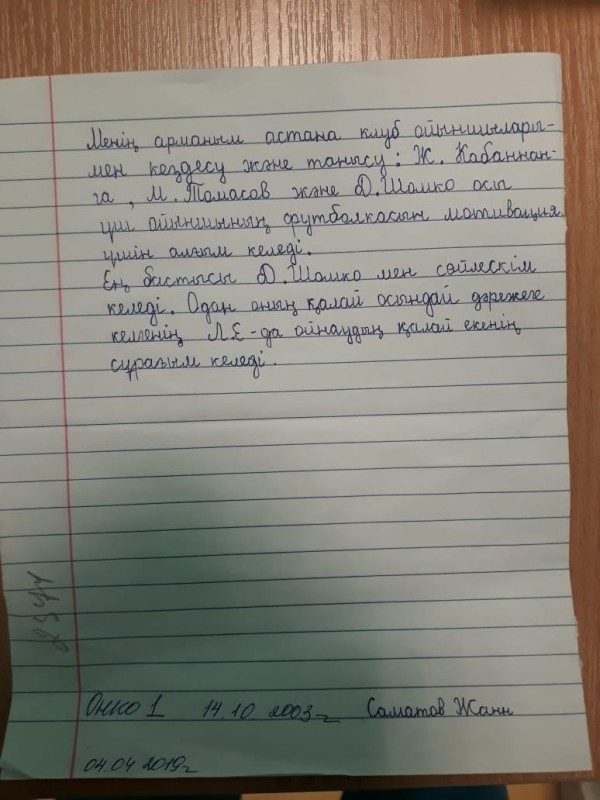 Менің арманым астана клуб ойыншылары-
мен кездесу және танысу: Ж. Кабаннан-
га, М. Томасов және Д. Шомко осы
үш ойыншының футболкасын мотивация
үшін алғым келеді.
Ең бастысы Д. Шомко мен сөйлескім
келеді. Одан оның қалай осындай дәрежеге
келгенің Л.Е-да ойнаудың қалай екенің
сұрағым келеді.
Онко 1 14.10 2003г Саматов Жан
04.04 2019г